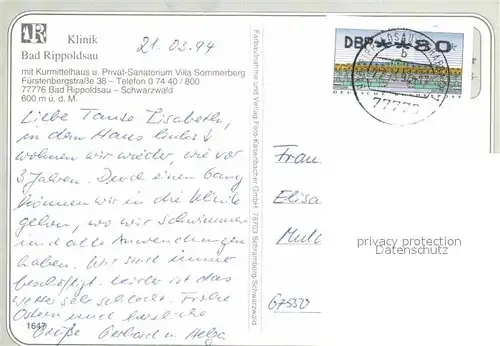 Klinik
Bad Rippoldsau
mit Kurmittelhaus u. Privat-Sanatorium Villa Sommerberg
Fürstenbergstraße 36 – Telefon 0 74 40 / 800
77776 Bad Rippoldsau – Schwarzwald
600 m ü. d. M.
21.03.94
Liebe Tante Elisabeth,
in dem Haus links
wohnen wir wieder, wie vor
3 Jahren. Durch einen Gang
können wir in die Klinik
gehen, wo wir schwimmen
und alle Anwendungen
haben. Wir sind immer
beschäftigt. Leider ist das
Wetter sehr schlecht. Frohe
Ostern und herzliche
Grüße Gerhard u. Helga
1647
Farbaufnahme und Verlag Foto-Kasenbacher GmbH 78703 Schramberg/Schwarzwald
DBP **80
77776
Frau
Elisa
privacy protection
oldthing.de
67550